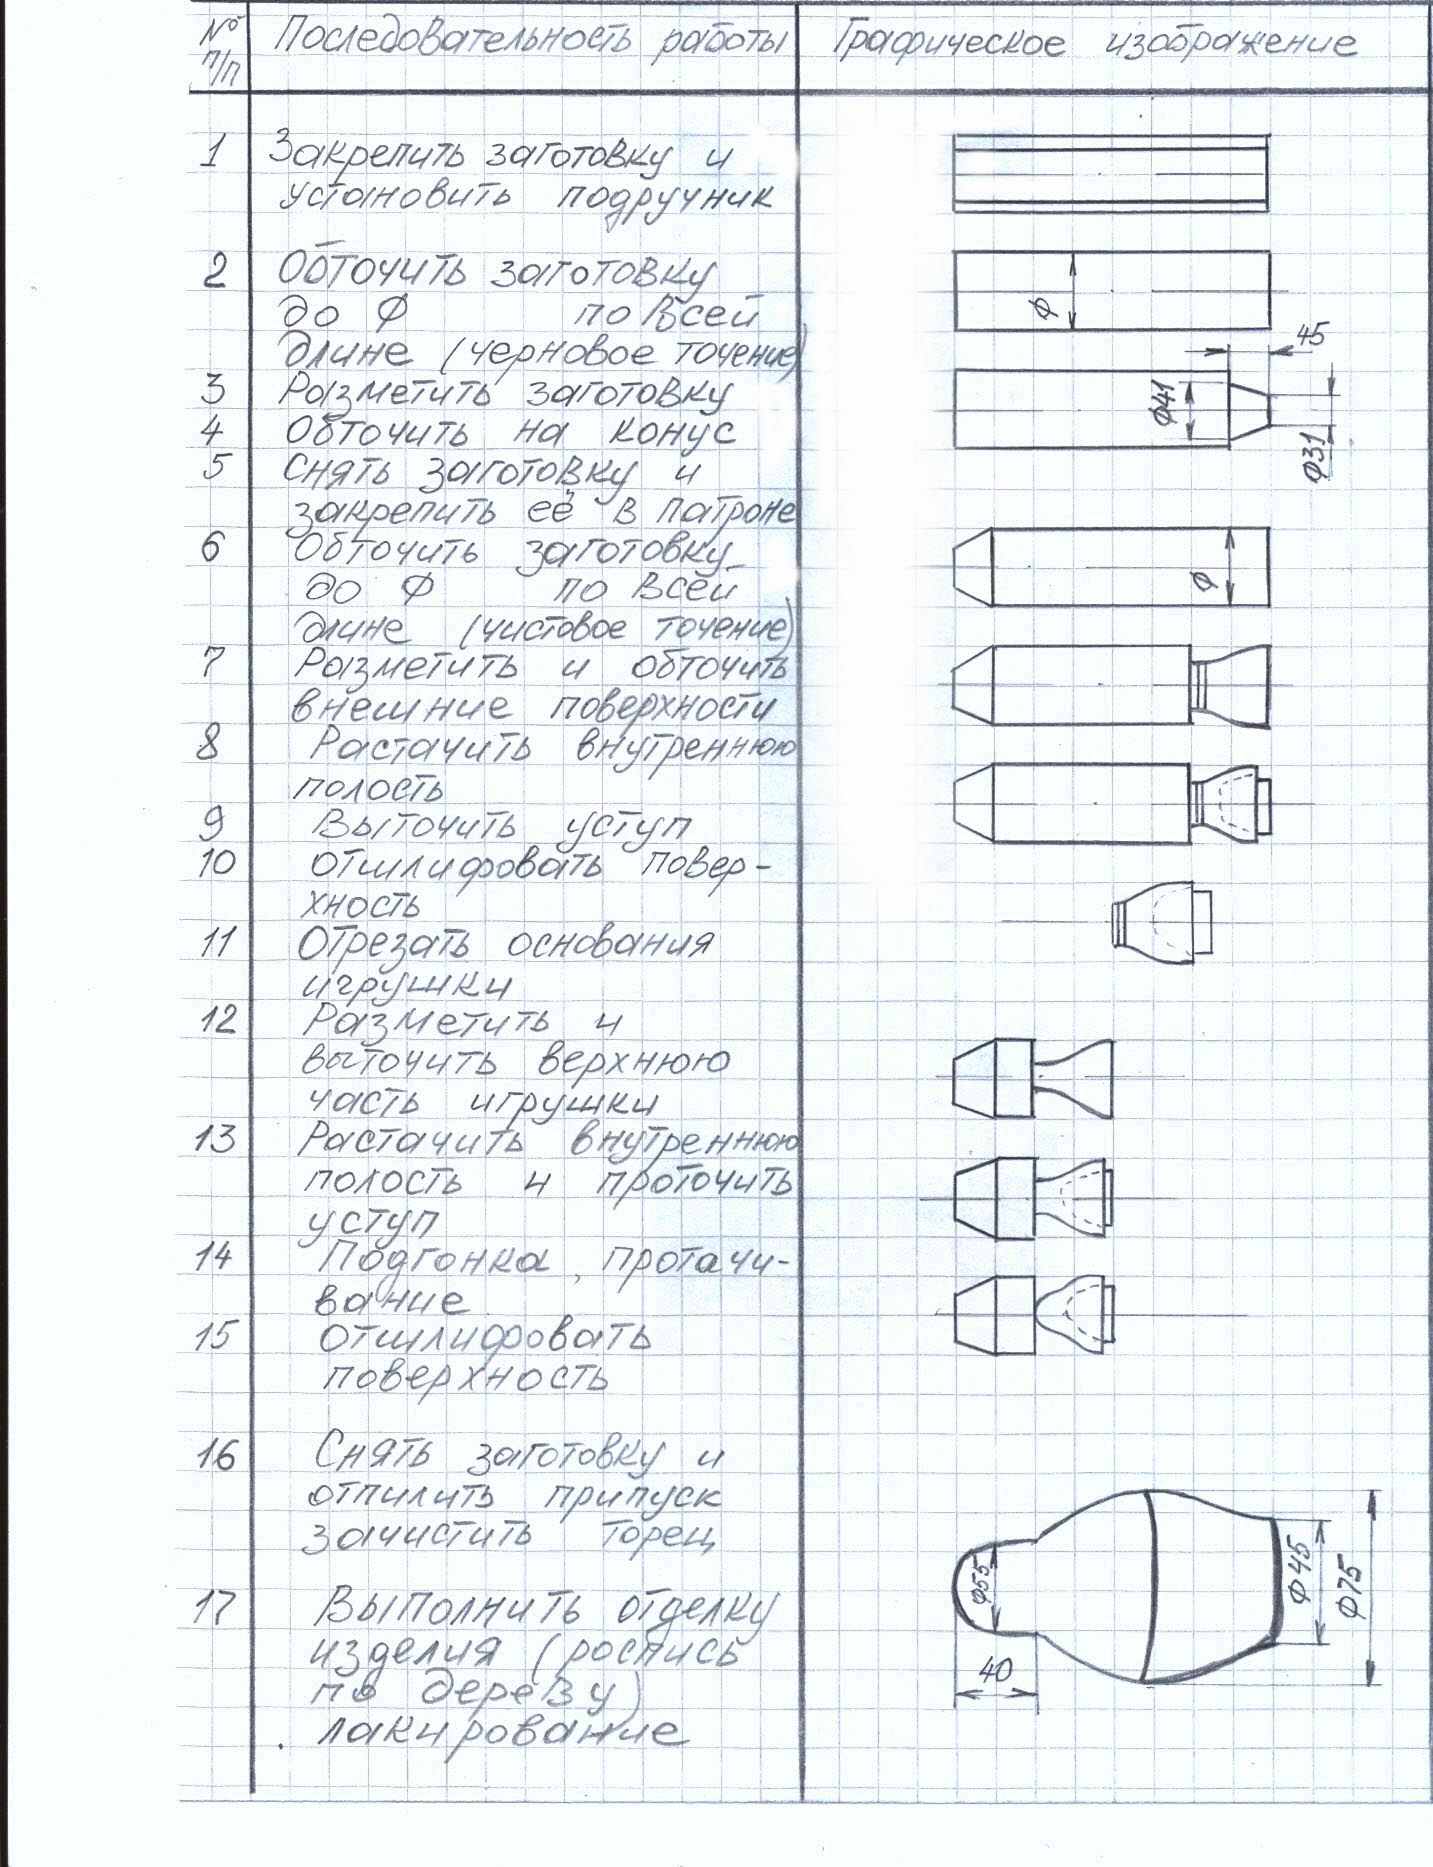 № Последовательность работы Графическое изображение
п/п
1 Закрепить заготовку и
установить подручник
2 Обточить заготовку
до Ф по всей
длине (черновое точение)
Ф
45
3 Разметить заготовку
4 Обточить на конус
Ф41
Ф31
5 Снять заготовку и
закрепить её в патроне
6 Обточить заготовку
до Ф по всей
длине (чистовое точение)
Ф
7 Разметить и обточить
внешние поверхности
8 Растачить внутреннюю
полость
9 Выточить уступ
10 Отшлифовать повер-
хность
11 Отрезать основания
игрушки
12 Разметить и
выточить верхнюю
часть игрушки
13 Растачить внутреннюю
полость и проточить
уступ
14 Подгонка, протачи-
вание
15 Отшлифовать
поверхность
16 Снять заготовку и
отпилить припуск
зачистить торец
17 Выполнить отделку
изделия (роспись
по дереву)
лакирование
Ф55
Ф45
Ф75
40